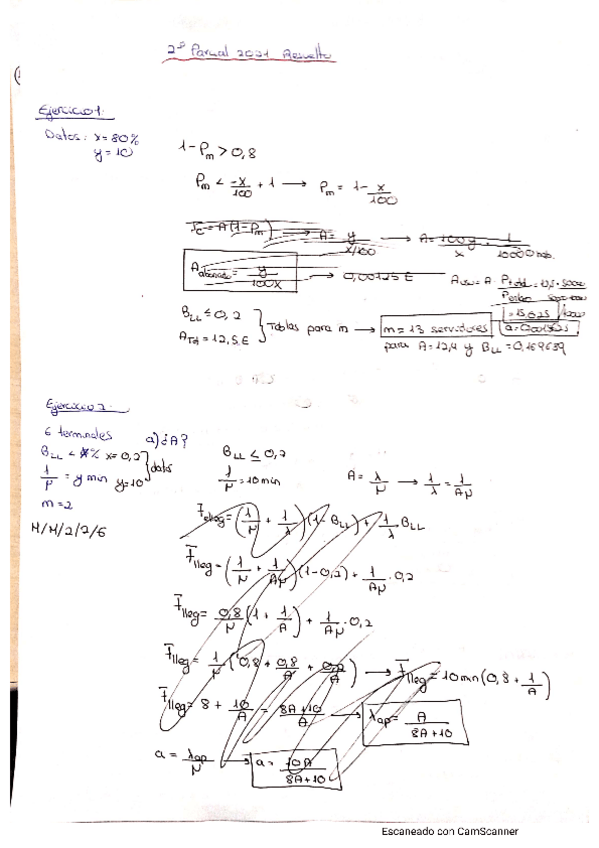 2º Parcial 2021 Resuelto
Ejercicio 1:
Datos: x=80%
y=10
1-Pm > 0,8
Pm < -x/100 + 1 → Pm = 1 - x/100
Tc = A(1-Pm) → A = y/(x/100) → A = 100y/x · 1/10000 hab.
A abonado = y/100x → 0,00125 E
BLL ≤ 0,2
ATot = 12,5 E
Tablas para m → m = 13 servidores
para A=12,4 y BLL = 0,169639
Ejercicio 2:
6 terminales
a) ¿A?
BLL < x% x=0,2
1/μ = y min y=10
datos
m=2
M/M/2/2/6
BLL ≤ 0,2
1/μ = 10 min
A = λ/μ → 1/λ = 1/Aμ
Tlleg = (1/μ + 1/λ)(1-BLL) + 1/λ BLL
Tlleg = (1/μ + 1/Aμ)(1-0,2) + 1/Aμ · 0,2
Tlleg = 0,8/μ (1 + 1/A) + 1/Aμ · 0,2
Tlleg = 1/μ (0,8 + 0,8/A + 0,2/A) → Tlleg = 10 min (0,8 + 1/A)
Tlleg = 8 + 10/A = 8A+10/A → λap = A/8A+10
a = λap/μ → a = 10A/8A+10
Escaneado con CamScanner